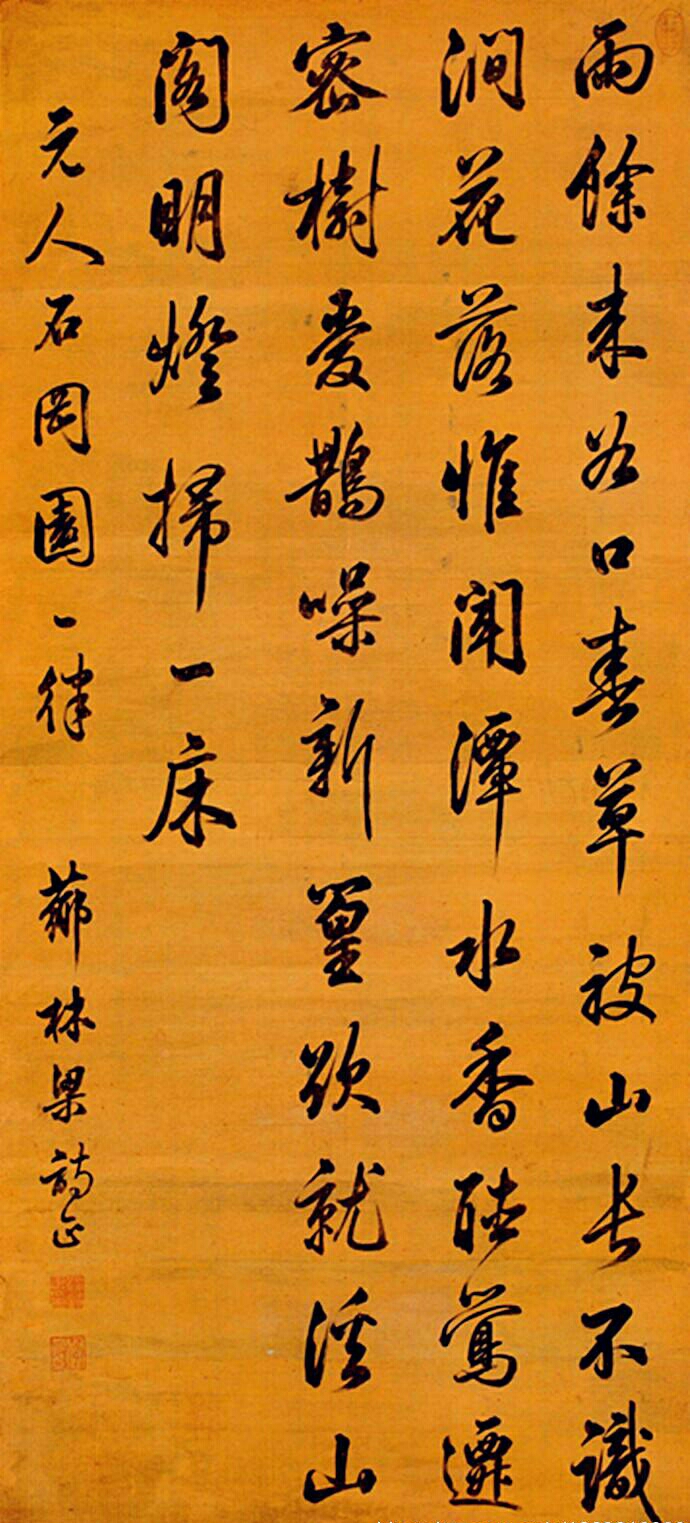 雨餘來谷口春草被山長不識
澗花落惟聞潭水香聽鶯遷
密樹愛鵲噪新篁欲就溪山
閣明燈掃一床
元人石岡園一律 薌林梁詩正